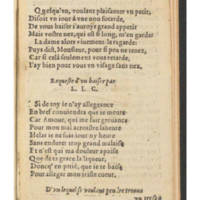 Quelqu'vn, voulant plaisanter vn petit,
Disoit vn iour à vne non sotarde,
De vous baiser i'auroys grand appetit
Mais vostre nez, qui est si long, m'en garder
La dame alors viuement le regarde:
Puys dit, Monsieur, pour si peu ne tenez,
Car si cela seulement vous retarde,
I'ay bien pour vous vn visage sans nez.
Requeste d'un baiser par
L. L. C.
Si de toy ie n'ay allegeance
En bref conuiendra que ie meure
Car Amour, qui me fut
Pour mon mal accroistre labeure
Helas ie ne suis tout ny heure
Sans endurer trop grand malaise
Et n'est qui ma douleur appaise
Que de ta grace la liqueur,
Donc permetz que ie te baise
Pour alleger mon triste coeur.
D'vn lequel se voulant
vn